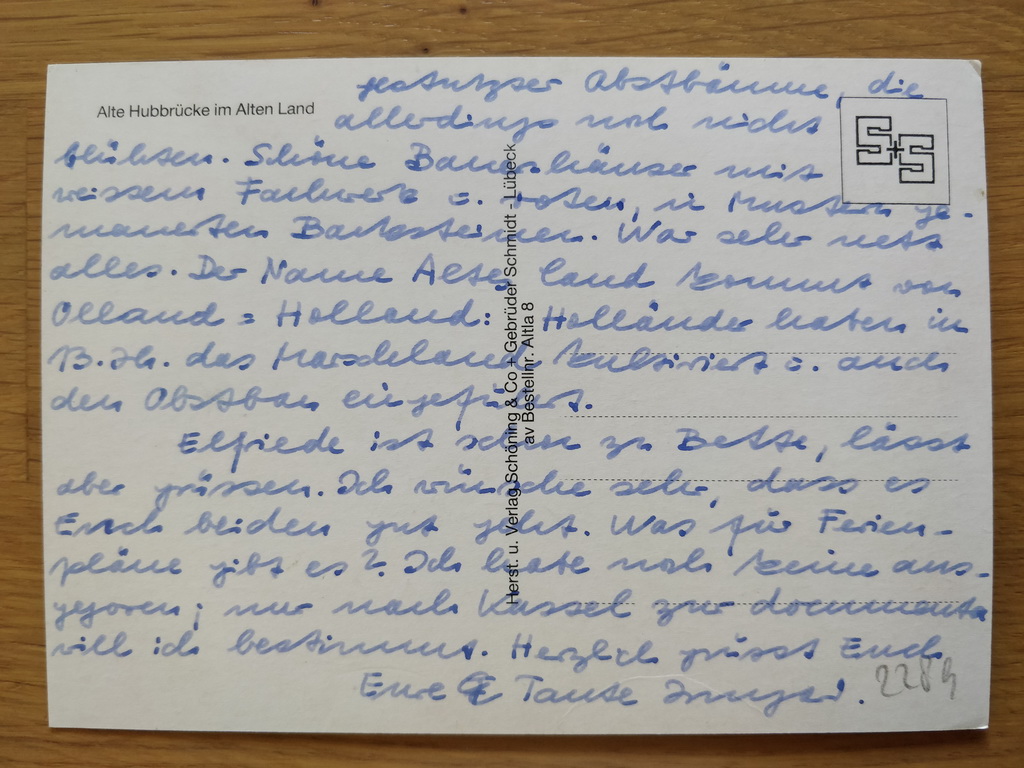 Alte Hubbrücke im Alten Land
gestutzter Obstbäume, die
allerdings noch nicht
blühten. Schöne Bauernhäuser mit
weissem Fachwerk u. roten, in Mustern ge-
mauerten Backsteinen. War sehr nett
alles. Der Name Altes Land kommt von
Olland = Holland: Holländer haben im
13. Jh. das Marschland kultiviert u. auch
den Obstbau eingeführt.
Elfriede ist schon zu Bette, lässt
aber grüssen. Ich wünsche sehr, dass es
Euch beiden gut geht. Was für Ferien-
pläne gibt es? Ich habe noch keine aus-
gegoren; nur nach Kassel zur documenta
will ich bestimmt. Herzlich grüsst Euch
Eure Tante Irmgard.
2284
S+S
Herst. u. Verlag Schöning & Co + Gebrüder Schmidt - Lübeck
av Bestellnr. Altla 8